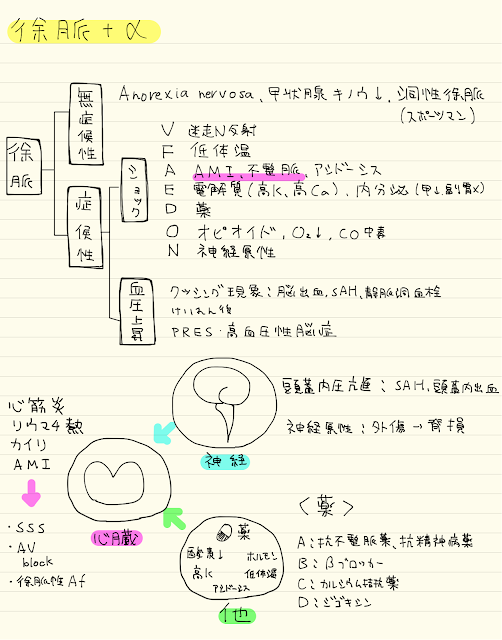 徐脈 + α
無症候性
Anorexia nervosa、甲状腺キノウ↓、洞性徐脈
(スポーツマン)
徐脈
症候性
ショック
V 迷走N反射
F 低体温
A AMI、不整脈、アシドーシス
E 電解質(高K、高Ca)、内分泌(甲↓、副腎×)
D 薬
O オピオイド、O₂↓、CO中毒
N 神経原性
血圧上昇
クッシング現象:脳出血、SAH、静脈洞血栓
けいれん後
PRES・高血圧性脳症
頭蓋内圧亢進:SAH、頭蓋内出血
神経原性:外傷→脊損
神経
心筋炎
リウマチ熱
カイリ
AMI
・SSS
・AV
block
・徐脈性Af
心臓
薬
酸素↓
ホルモン
高K
低体温
アシドーシス
他
〈薬〉
A:抗不整脈薬、抗精神病薬
B:βブロッカー
C:カルシウム拮抗薬
D:ジゴキシン